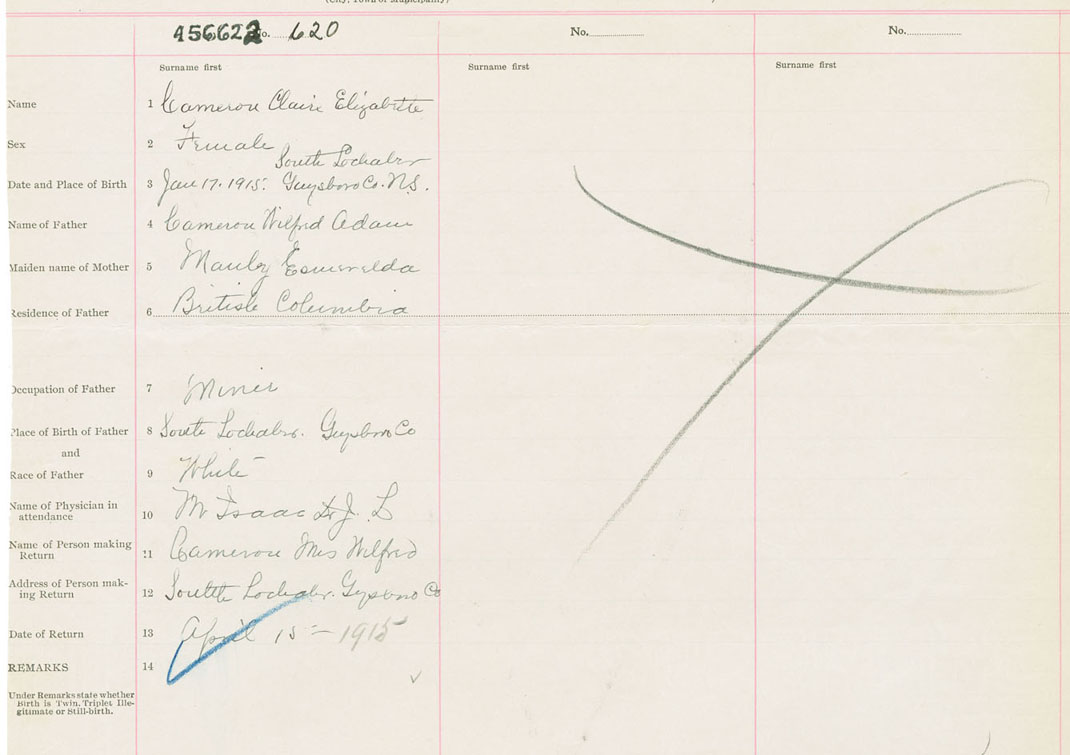 (City, Town or Municipality)
456622 No. 620
No.
No.
Surname first
Surname first
Surname first
Name 1 Cameron Claire Elizabette
Sex 2 Female
South Lochaber
Date and Place of Birth 3 Jan 17. 1915. Guysboro Co. N.S.
Name of Father 4 Cameron Wilfred Adam
Maiden name of Mother 5 Manby Esmerelda
Residence of Father 6 British Columbia
Occupation of Father 7 Miner
Place of Birth of Father 8 South Lochaber. Guysboro Co
and
Race of Father 9 White
Name of Physician in
attendance 10 Mc Isaac Dr J. L
Name of Person making
Return 11 Cameron Mrs Wilfred
Address of Person mak-
ing Return 12 South Lochaber. Gysboro Co
Date of Return 13 April 15 - 1915
REMARKS 14
Under Remarks state whether
Birth is Twin, Triplet Ille-
gitimate or Still-birth.